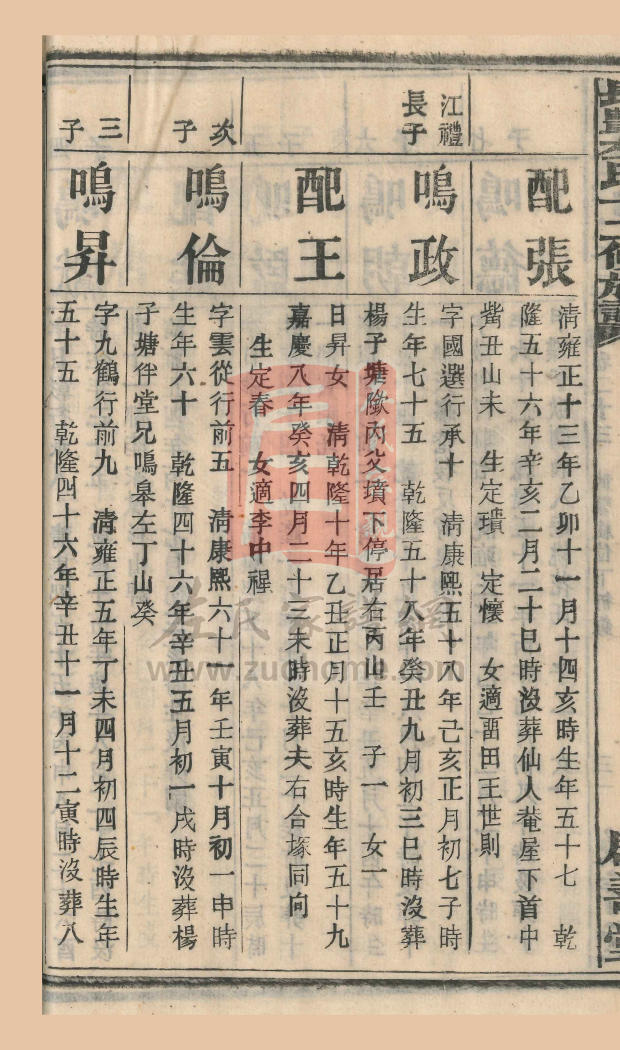 配張
清雍正十三年乙卯十一月十四亥時生年五十七 乾
隆五十六年辛亥二月二十巳時沒葬仙人菴屋下首中
嘴丑山未 生定璝 定懷 女適畱田王世則
江禮
長子
鳴政
字國選行承十 清康熙五十八年己亥正月初七子時
生年七十五 乾隆五十八年癸丑九月初三巳時沒葬
楊子塘隞內父墳下停居右丙山壬 子一 女一
配王
日昇女 清乾隆十年乙丑正月十五亥時生年五十九
嘉慶八年癸亥四月二十三未時沒葬夫右合塚同向
生定春 女適李中程
次子
鳴倫
字雲從行前五 清康熙六十一年壬寅十月初一申時
生年六十 乾隆四十六年辛丑五月初一戌時沒葬楊
子塘伴堂兄鳴皋左丁山癸
三子
鳴昇
字九鶴行前九 清雍正五年丁未四月初四辰時生年
五十五 乾隆四十六年辛丑十一月十二寅時沒葬八
左氏家譜網
www.zuohome.com